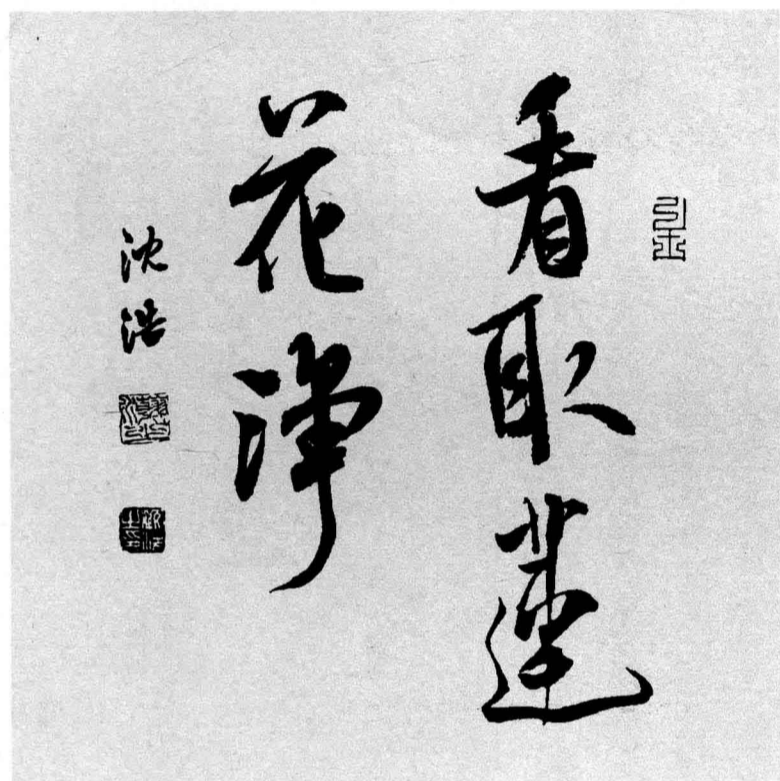 看取蓮
花淨
沈浩